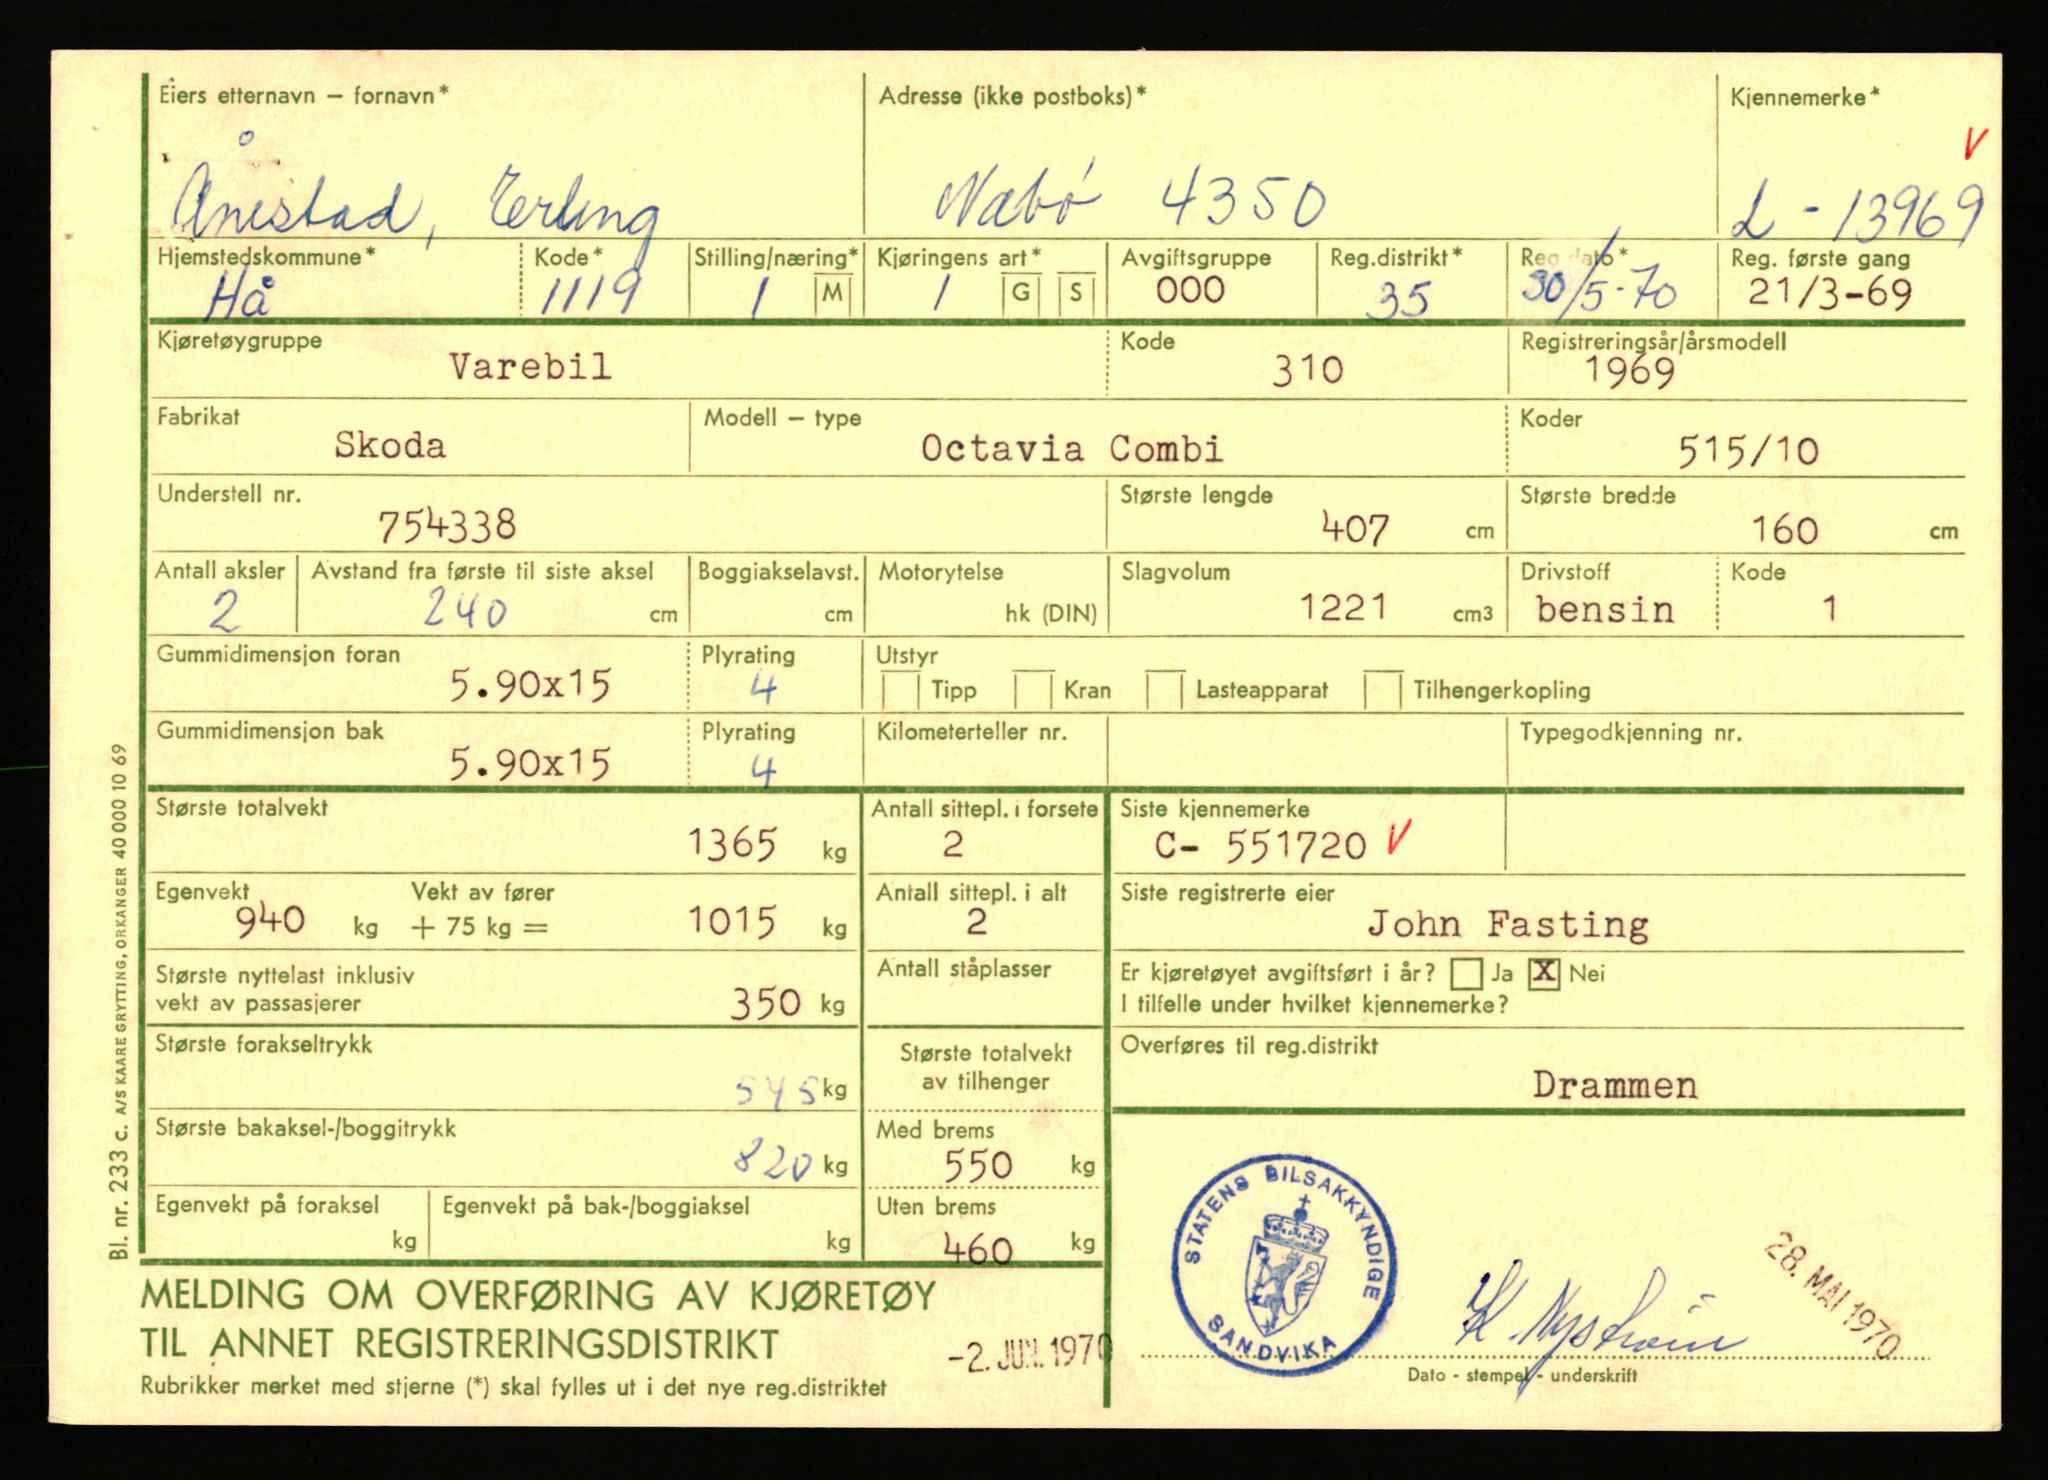 Eiers etternavn — fornavn*
Adresse (ikke postboks)*
Kjennemerke*
V
Ånestad, Erling
Næbø 4350
L - 13969
Hjemstedskommune*
Kode*
Stilling/næring*
Kjøringens art*
Avgiftsgruppe
Reg.distrikt*
Reg.dato*
Reg. første gang
Hå
1119
1 M
1 G S
000
35
30/5-70
21/3-69
Kjøretøygruppe
Varebil
Kode
310
Registreringsår/årsmodell
1969
Fabrikat
Skoda
Modell — type
Octavia Combi
Koder
515/10
Understell nr.
754338
Største lengde
407 cm
Største bredde
160 cm
Antall aksler
2
Avstand fra første til siste aksel
240 cm
Boggiakselavst.
cm
Motorytelse
hk (DIN)
Slagvolum
1221 cm3
Drivstoff
bensin
Kode
1
Gummidimensjon foran
5.90x15
Plyrating
4
Utstyr
Tipp Kran Lasteapparat Tilhengerkopling
Gummidimensjon bak
5.90x15
Plyrating
4
Kilometerteller nr.
Typegodkjenning nr.
Største totalvekt
1365 kg
Antall sittepl. i forsete
2
Siste kjennemerke
C- 551720 V
Egenvekt
940 kg
Vekt av fører
+ 75 kg = 1015 kg
Antall sittepl. i alt
2
Siste registrerte eier
John Fasting
Største nyttelast inklusiv
vekt av passasjerer
350 kg
Antall ståplasser
Er kjøretøyet avgiftsført i år? Ja X Nei
I tilfelle under hvilket kjennemerke?
Største forakseltrykk
545 kg
Største totalvekt
av tilhenger
Overføres til reg.distrikt
Drammen
Største bakaksel-/boggitrykk
820 kg
Med brems
550 kg
Egenvekt på foraksel
kg
Egenvekt på bak-/boggiaksel
kg
Uten brems
460 kg
STATENS BILSAKKYNDIGE
SANDVIKA
K. Nystrøm
28. MAI 1970
Dato - stempel - underskrift
MELDING OM OVERFØRING AV KJØRETØY
TIL ANNET REGISTRERINGSDISTRIKT
-2. JUN. 1970
Rubrikker merket med stjerne (*) skal fylles ut i det nye reg.distriktet
Bl. nr. 233 c. A/S KAARE GRYTTING, ORKANGER 40 000 10 69